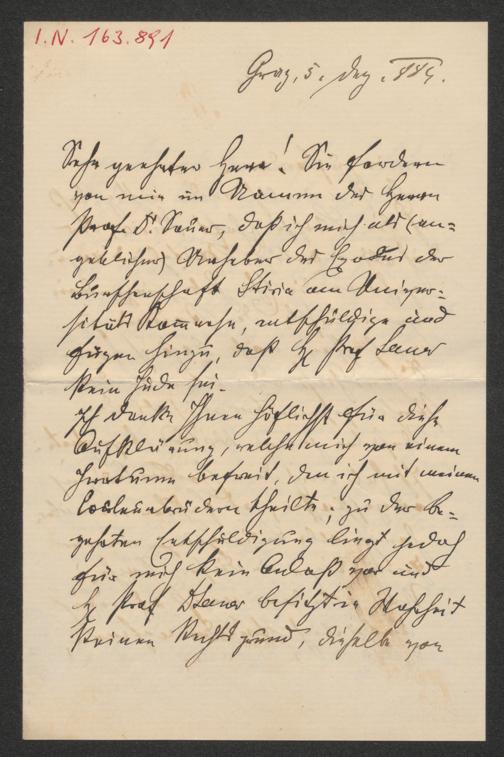 I.N. 163.891
Graz, 5. Dez. 884.
Sehr geehrter Herr! Sie fordern
von mir im Namen des Herrn
Prof. Dr. Sauer, daß ich mich als (an-
geblicher) Urheber des Exodus der
Burschenschaft Stiria am Univer-
sitäts Commerse, entschuldige und
fügen hinzu, daß H Prof Sauer
kein Jude sei.
Ich danke Ihnen höflichst für diese
Aufklärung, welche mich von einem
Irrthume befreit, den ich mit meinen
Couleurbrüdern theilte; zu der be-
gehrten Entschuldigung liegt jedoch
für mich kein Anlaß vor und
H Prof Sauer besitzt in Wahrheit
keinen Rechtsgrund, dieselbe von